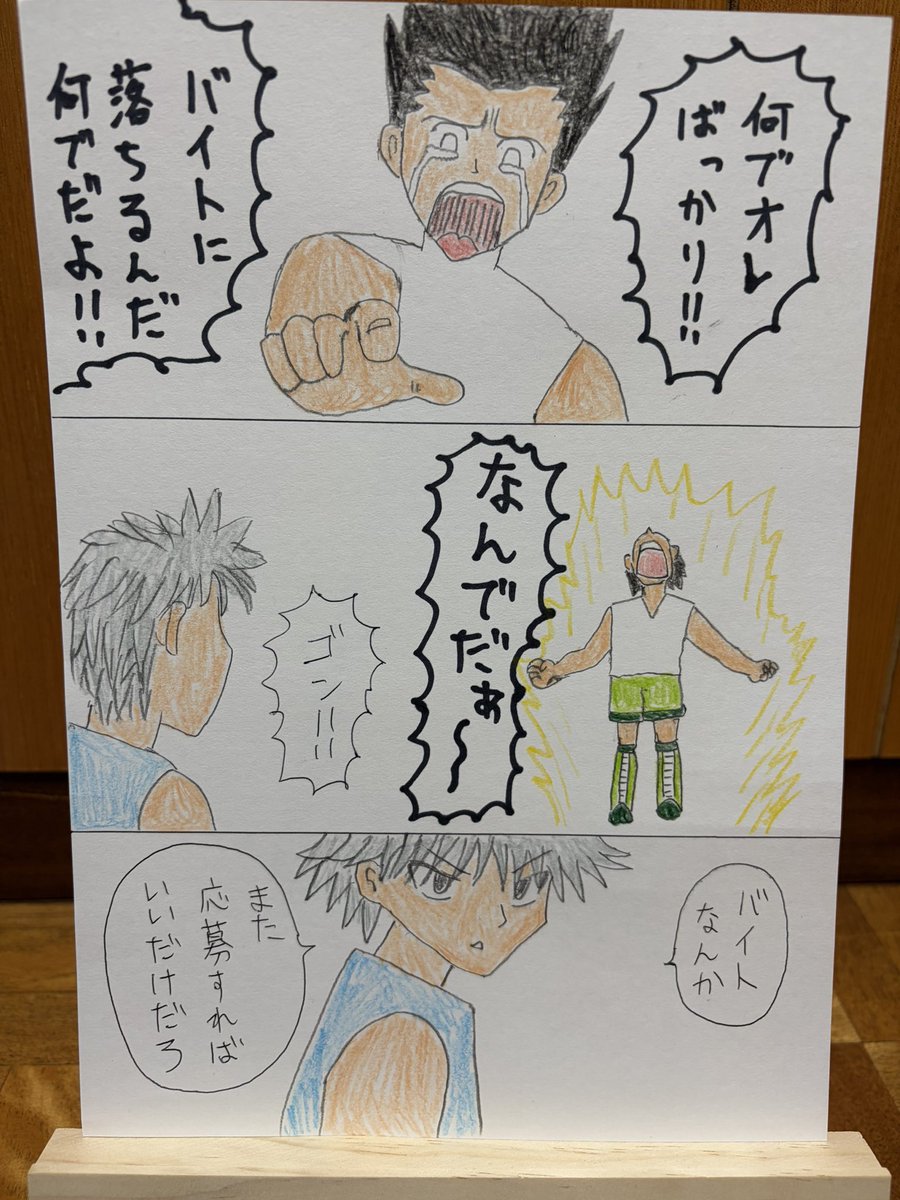 何でオレ
ばっかり!!
バイトに
落ちるんだ
何でだよ!!
なんでだぁ〜
ゴン!!
バイト
なんか
また
応募すれば
いいだけだろ